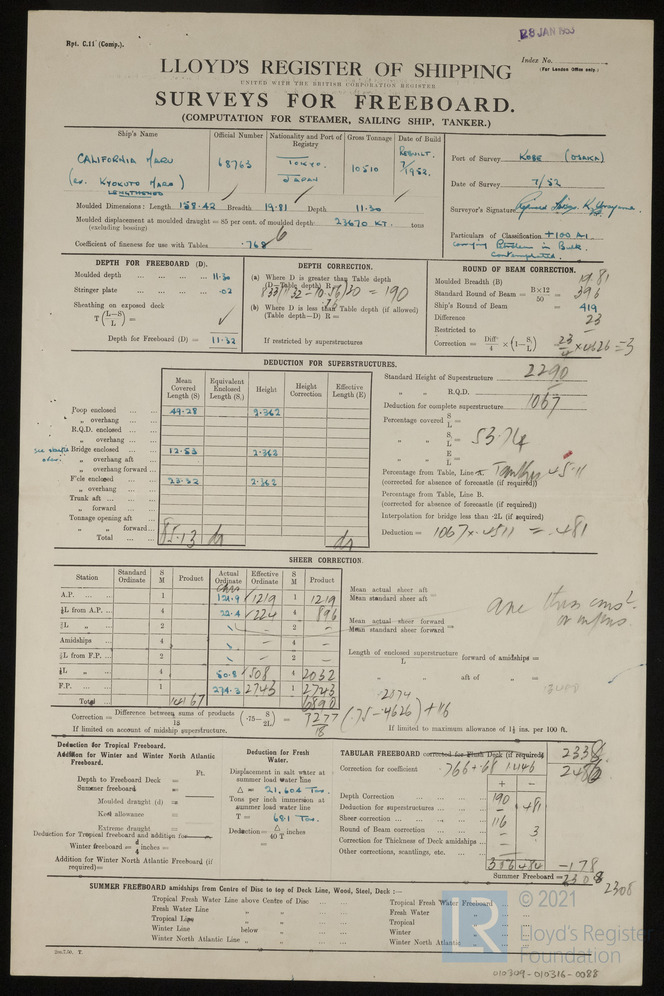 28 JAN
Rpt. C.11 (Comp.).
Index No.
(For London Office only.)
LLOYD'S REGISTER OF SHIPPING
UNITED WITH THE BRITISH CORPORATION REGISTER
SURVEYS FOR FREEBOARD.
(COMPUTATION FOR STEAMER, SAILING SHIP, TANKER.)
Ship's Name
Official Number
Nationality and Port of Registry
Gross Tonnage
Date of Build
CALIFORNIA MARU
(ex. KYOKUTO MARU)
LENGTHENED
68763
TOKYO.
JAPAN
10510
REBUILT.
7/1952.
Port of Survey KOBE (OSAKA)
Date of Survey 7/52
Surveyor's Signature
Particulars of Classification +100 A1
Carrying Petroleum in Bulk.
Contemplated.
Moulded Dimensions: Length 158.42 Breadth 19.81 Depth 11.30
Moulded displacement at moulded draught = 85 per cent. of moulded depth 23670 KT. tons
(excluding bossing)
Coefficient of fineness for use with Tables .768
DEPTH FOR FREEBOARD (D).
Moulded depth 11.30
Stringer plate .02
Sheathing on exposed deck
T(L-S/L) =
Depth for Freeboard (D) = 11.32
DEPTH CORRECTION.
(a) Where D is greater than Table depth
(D-Table depth) R =
= 190
(b) Where D is less than Table depth (if allowed)
(Table depth-D) R =
If restricted by superstructures
ROUND OF BEAM CORRECTION.
Moulded Breadth (B) 19.81
Standard Round of Beam = B×12/50 = 396
Ship's Round of Beam = 419
Difference 23
Restricted to
Correction = Diff/4 × (1-S/L) 23/4 × .4626 = 3
DEDUCTION FOR SUPERSTRUCTURES.
Mean Covered Length (S)
Equivalent Enclosed Length (S.)
Height
Height Correction
Effective Length (E)
Poop enclosed 49.28 2.362
„ overhang
R.Q.D. enclosed
„ overhang
Bridge enclosed 12.53 2.362
„ overhang aft
„ overhang forward
F'cle enclosed 23.32 2.362
„ overhang
Trunk aft
„ forward
Tonnage opening aft
„ „ forward
Total 85.13 do do
Standard Height of Superstructure 2290
„ „ R.Q.D.
Deduction for complete superstructure 1067
Percentage covered S/L =
„ „ S₁/L = 53.74
„ „ E/L =
Percentage from Table, Line A. Tanker 45.11
(corrected for absence of forecastle (if required))
Percentage from Table, Line B.
(corrected for absence of forecastle (if required))
Interpolation for bridge less than ·2L (if required)
Deduction = 1067 × .4511 = .481
SHEER CORRECTION.
Station
Standard Ordinate
S M
Product
Actual Ordinate
Effective Ordinate
S M
Product
A.P. 1 121.9 1219 1 1219
⅙L from A.P. 4 22.4 224 4 896
⅓L „ 2 - 2 -
Amidships 4 - 4 -
⅓L from F.P. 2 - 2 -
⅙L „ 4 50.8 508 4 2032
F.P. 1 274.3 2743 1 2743
Total 14167 6890
Mean actual sheer aft
Mean standard sheer aft =
Mean actual sheer forward
Mean standard sheer forward =
Length of enclosed superstructure
L
forward of amidships =
„ aft of „ =
are this cms?
or
Correction = Difference between sums of products/18 (·75-S/2L) = 7277/18 (.75-.4626) +116
If limited on account of midship superstructure.
If limited to maximum allowance of 1½ ins. per 100 ft.
Deduction for Tropical Freeboard.
Addition for Winter and Winter North Atlantic Freeboard.
Ft.
Depth to Freeboard Deck =
Summer freeboard =
Moulded draught (d) =
Keel allowance =
Extreme draught =
Deduction for Tropical freeboard and addition for
Winter freeboard = d/4 inches =
Addition for Winter North Atlantic Freeboard (if required) =
Deduction for Fresh Water.
Displacement in salt water at summer load water line
Δ = 21,604 Ton.
Tons per inch immersion at summer load water line
T = 68.1 Ton.
Deduction = Δ/40 T inches
=
TABULAR FREEBOARD corrected for Flush Deck (if required)
Correction for coefficient .766+.68
+ -
Depth Correction 190
Deduction for superstructures - 481
Sheer correction 116
Round of Beam correction - 3
Correction for Thickness of Deck amidships -
Other corrections, scantlings, etc.
484 -178
Summer Freeboard = 2308
2308
SUMMER FREEBOARD amidships from Centre of Disc to top of Deck Line, Wood, Steel, Deck :—
Tropical Fresh Water Line above Centre of Disc
Fresh Water Line „ „
Tropical Line „ „
Winter Line below „
Winter North Atlantic Line „ „
Tropical Fresh Water Freeboard
Fresh Water „
Tropical „
Winter „
Winter North Atlantic „
LR
© 2021
Lloyd's Register
Foundation
010309-010316-0088